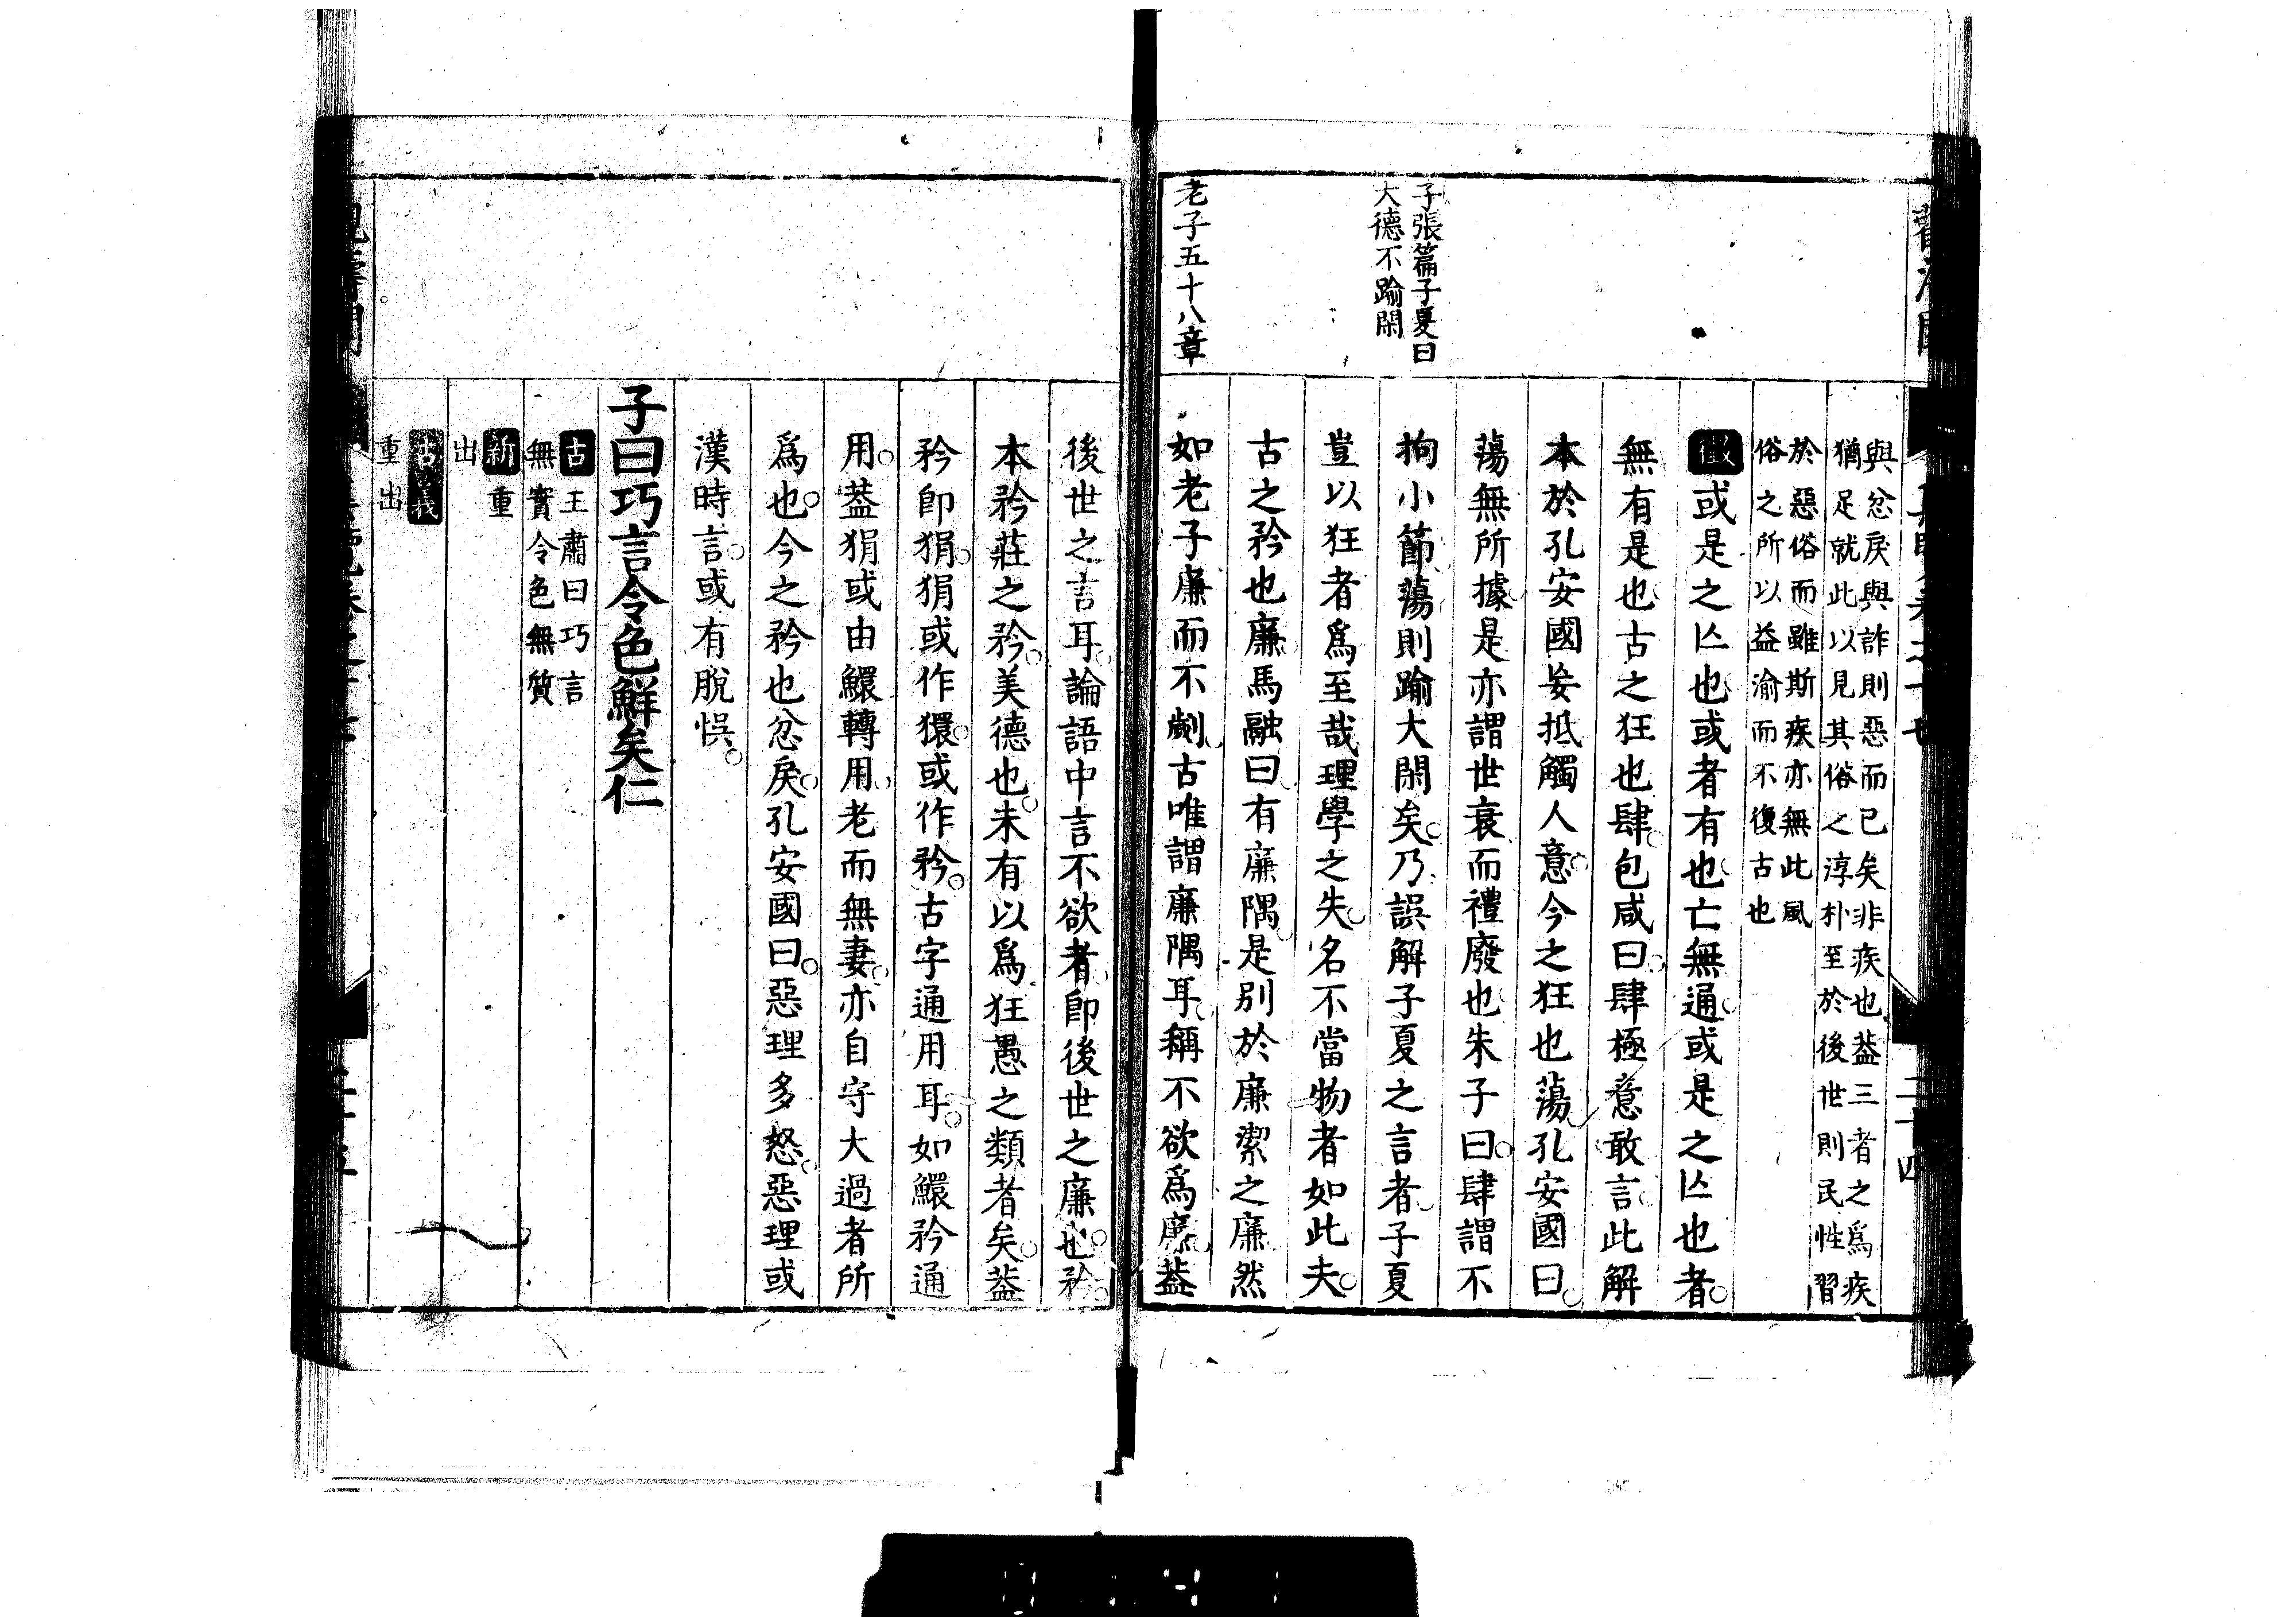 子張篇子夏曰
大德不踰閑
老子五十八章
與忿戾與詐則惡而已矣非疾也蓋三者之爲疾
猶足就此以見其俗之淳朴至於後世則民性習
於惡俗而雖斯疾亦無此風
俗之所以益渝而不復古也
徵或是之亾也或者有也亡無通或是之亾也者
無有是也古之狂也肆包咸曰肆極意敢言此解
本於孔安國妄抵觸人意今之狂也蕩孔安國曰
蕩無所據是亦謂世衰而禮廢也朱子曰肆謂不
拘小節蕩則踰大閑矣乃誤解子夏之言者子夏
豈以狂者爲至哉理學之失名不當物者如此夫
古之矜也廉馬融曰有廉隅是別於廉潔之廉然
如老子廉而不劌古唯謂廉隅耳稱不欲爲廉蓋
後世之言耳論語中言不欲者卽後世之廉也矜
本矜莊之矜美德也未有以爲狂愚之類者矣蓋
矜卽狷狷或作獧或作矜古字通用耳如鰥矜通
用蓋狷或由鰥轉用老而無妻亦自守大過者所
爲也今之矜也忿戾孔安國曰惡理多怒惡理或
漢時言或有脫悞
子曰巧言令色鮮矣仁
古王肅曰巧言
無實令色無質
新重
出
古義
重出